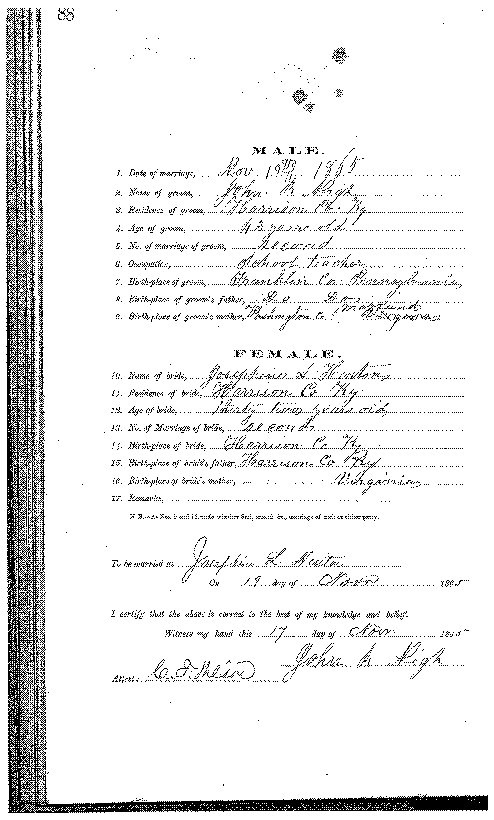 88
MALE.
1. Date of marriage, Nov. 19th 1865
2. Name of groom, John N High
3. Residence of groom, Harrison Co. Ky
4. Age of groom, 43 years old
5. No. of marriage of groom, Second
6. Occupation, School teacher
7. Birthplace of groom, Franklin Co. Pennsylvania,
8. Birthplace of groom's father, Do Do
9. Birthplace of groom's mother, Washington Co. Maryland
FEMALE.
10. Name of bride, Josephine L
11. Residence of bride, Harrison Co Ky
12. Age of bride, Thirty two years old,
13. No. of Marriage of bride, Second
14. Birthplace of bride, Harrison Co Ky
15. Birthplace of bride's father, Harrison Co Ky
16. Birthplace of bride's mother, Virginia
17. Remarks,
To be married to Josephine L
On 19 day of Novm 1865
I certify that the above is correct to the best of my knowledge and belief.
Witness my hand this 17 day of Nov 1865
John N High
Attest,